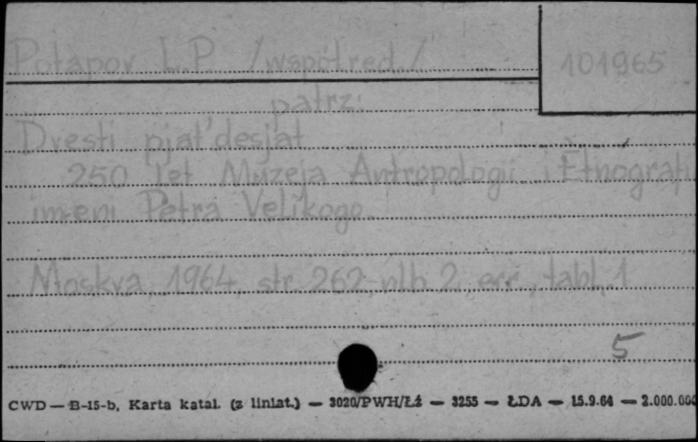 Potapov L.P. /współred./ 101965
patrz:
Dvesti pjat'desjat
250 let Muzeja Antropologii i Étnografi
imeni Petra Velikogo.
Moskva, 1964, str. 262, nlb 2, err., tabl. 1
5
CWD — B-15-b. Karta katal. (z liniat.) — 3020/PWH/Łź — 3255 — ŁDA — 15.9.64 — 2.000.000